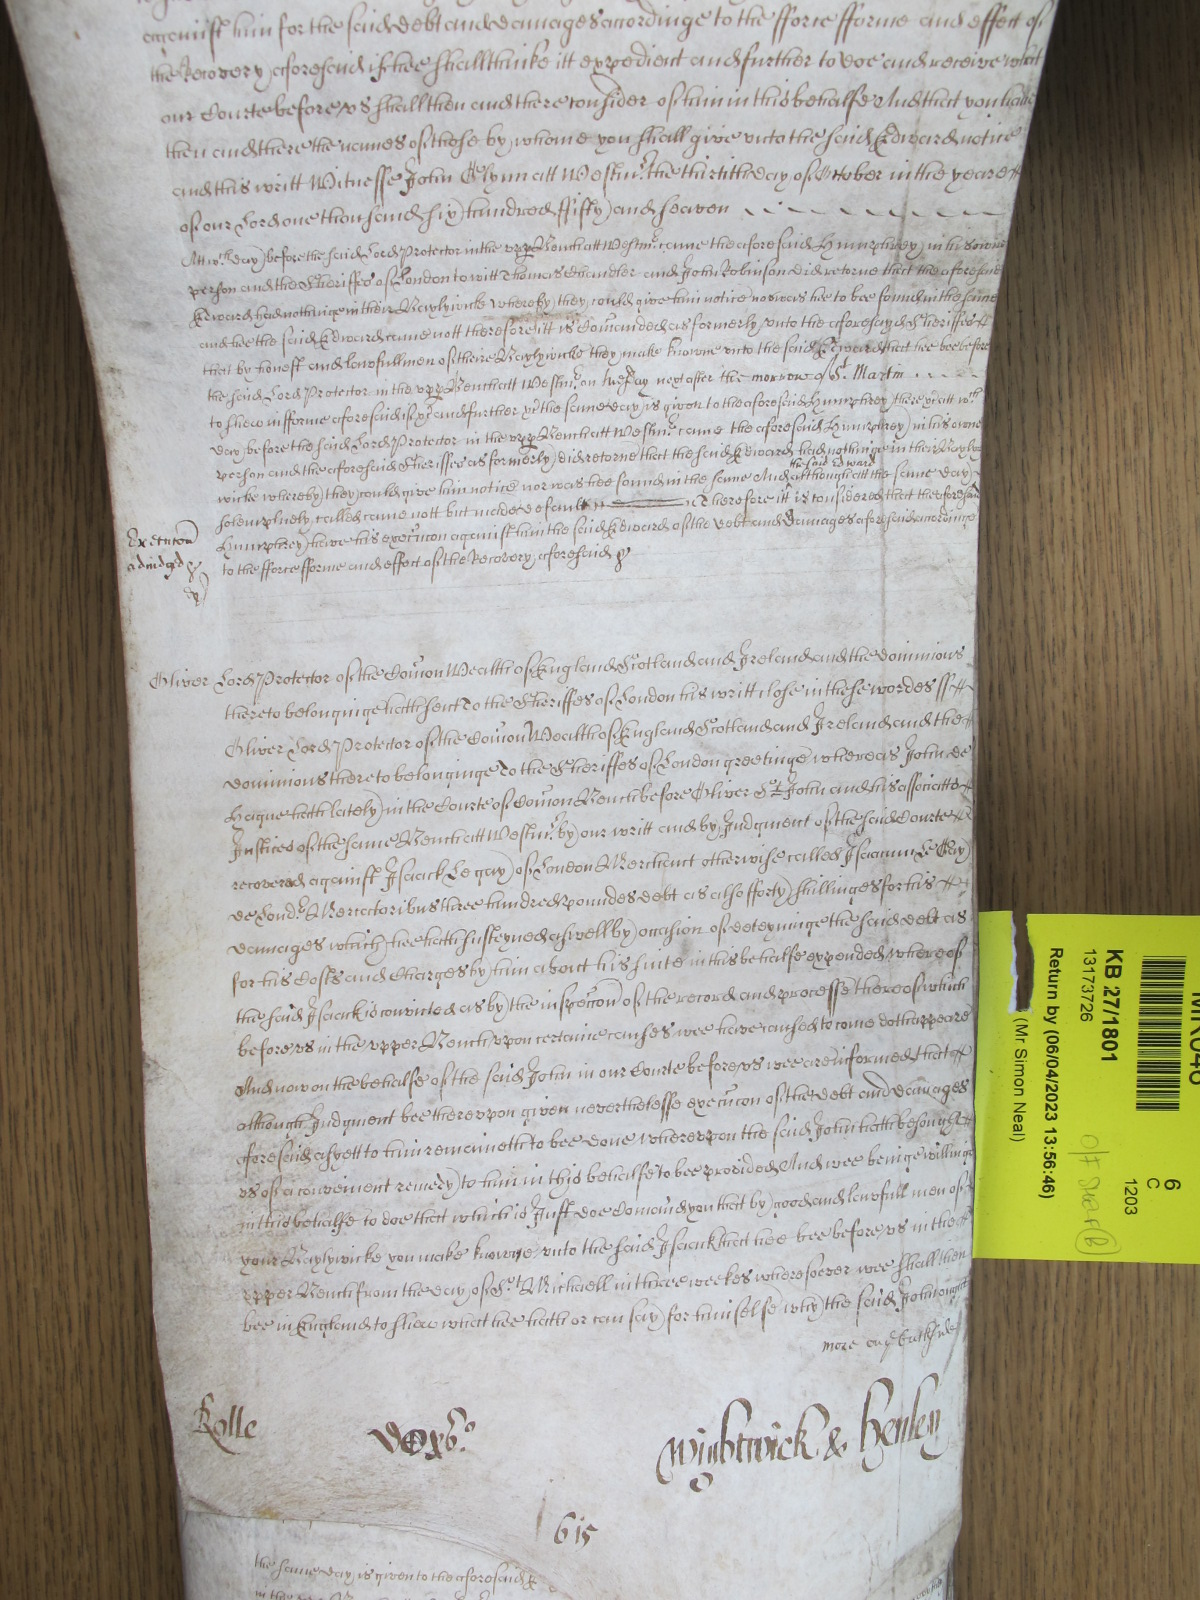 against him for the said debt and damages accordinge to the fforce fforme and effect of
the Recovery aforesaid if hee shall thinke itt expedient and further to doe and receive what
our Courte before vs shall then and there consider of him in this behalfe And that you have
then and there the names of those by whome you shall give vnto the said Edward notice
and this writt Witnesse John Glynn att Westmr. the thirtith day of October in the yeare
of our Lord one thousand six hundred ffifty and seaven
Att wch. day before the said Lord Protector in the vpp Bench att Westmr. came the aforesaid Humphrey in his owne
person and the Sheriffes of London to witt Thomas Chandler and John Robinson did retorne that the aforesaid
Edward had nothinge in their Baylywicke whereby they could give him notice nor was hee to bee found in the same
and hee the said Edward came nott therefore itt is Comanded as formerly vnto the aforesayd Sheriffes
that by honest and lawfull men of theire Baylywicke they make knowne vnto the said Edward that hee bee before
the said Lord Protector in the vpp Bench att Westmr. on tuesday next after the morrow of St. Martin
to shew in fforme aforesaid if &c and further &c the same day is given to the aforesaid Humphrey there &c att wch
day before the said Lord Protector in the vpp Bench att Westmr. came the aforesaid Humphrey in his owne
person and the aforesaid Sheriffes as formerly did retorne that the said Edward had nothinge in their Bayly
wicke whereby they could give him notice nor was hee found in the same And although att the same day
the said Edward
solempnely called came nott but made default Therefore itt is considered that the aforesaid
Humphrey have his execucon against him the said Edward of the debt and damages aforesaid accordinge
to the fforce fforme and effect of the Recovery aforesaid &c
Execucon
adiudgd &c
Oliver Lord Protector of the Comon Wealth of England Scotland and Ireland and the dominions
thereto belonginge hath sent to the Sheriffes of London his writt close in these wordes ss
Oliver Lord Protector of the Comon Wealth of England Scotland and Ireland and the
dominions thereto belonginge To the Sheriffes of London greetinge whereas John de
Haque hath lately in the Courte of Comon Bench before Oliver St. John and his associattes
Justices of the same Bench att Westmr. by our writt and by Judgment of the said Courte
recovered against Isaack Le gay of London Merchant otherwise called Isaacum Le Gay
de Londr. Mercatoribus three hundred poundes debt as also fforty shillinges for his
damages which hee hath susteyned aswell by occasion of deteyninge the said debt as
for his Costs and Charges by him about his suite in this behalfe expended, whereof
the said Isaack is convicted as by the inspeccon of the record and processe thereof which
before vs in the vpper Bench vpon certaine causes wee have caused to come doth appeare
And now on the behalfe of the said John in our Courte before vs wee are informed that
although Judgment bee therevpon given neverthelesse execucon of the debt and damages
aforesaid as yett to him remaineth to bee done Wherevpon the said John hath besought
vs of a convenient remedy to him in this behalfe to bee provided, And wee beinge willinge
in this behalfe to doe that which is Just doe Comaund you that by good and lawfull men of
your Baylywicke you make knowne vnto the said Isaack that hee bee before vs in the
vpper Bench from the day of St. Michaell in three weekes wheresoever wee shall then
bee in England to shew what hee hath or can say for himselfe why the said John ought
more on ye backside
Rolle
Wightwick & Henley
615
the same day is given to the aforesaid
in the
KB 27/1801
13173726
Return by (06/04/2023 13:56:46)
(Mr Simon Neal)
6
C
1203